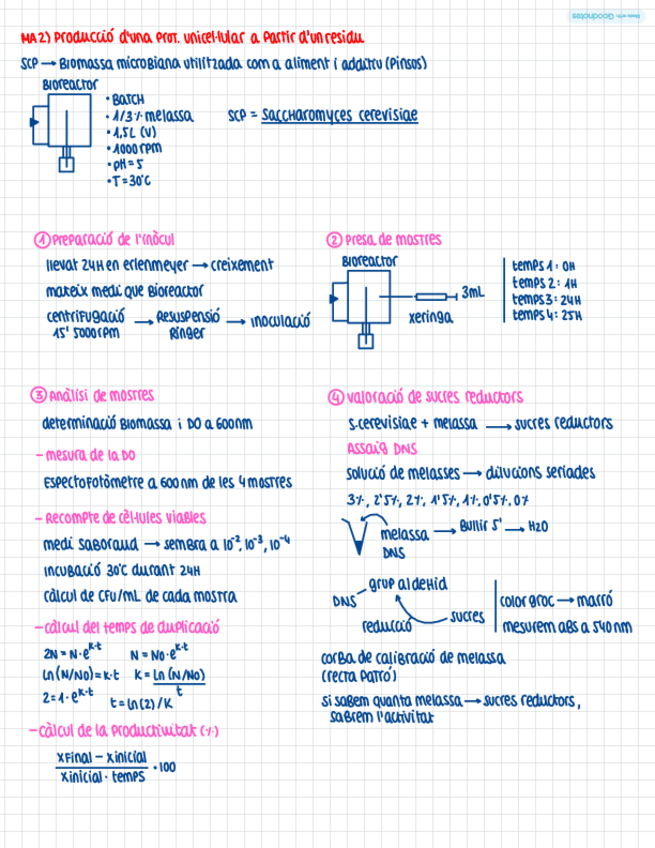 Made with Goodnotes
MA2) Producció d'una prot. unicel·lular a partir d'un residu
SCP → Biomassa microbiana utilitzada com a aliment i additiu (pinsos)
Bioreactor
• Batch
• 1/3% melassa
• 1,5L (V)
• 1000rpm
• pH=5
• T=30°C
SCP = Saccharomyces cerevisiae
① Preparació de l'inòcul
llevat 24H en erlenmeyer → creixement
mateix medi que Bioreactor
centrifugació → Resuspensió → inoculació
15' 5000rpm Ringer
② Presa de mostres
Bioreactor
3mL
xeringa
temps 1: 0H
temps 2: 1H
temps 3: 24H
temps 4: 25H
③ Anàlisi de mostres
determinació Biomassa i DO a 600nm
- mesura de la DO
Espectofotòmetre a 600nm de les 4 mostres
- Recompte de cèl·lules viables
medi saboraud → sembra a 10⁻², 10⁻³, 10⁻⁴
incubació 30°C durant 24H
càlcul de CFU/mL de cada mostra
- càlcul del temps de duplicació
2N = N·e^k·t N = N0·e^k·t
Ln(N/N0) = k·t K = Ln (N/N0)
t
2=1·e^k·t t = Ln(2)/K
- càlcul de la productivitat (%)
xfinal - xinicial
xinicial · temps
· 100
④ valoració de sucres reductors
S.cerevisiae + melassa → sucres reductors
Assaig DNS
solució de melasses → dilucions seriades
3%, 2'5%, 2%, 1'5%, 1%, 0'5%, 0%
melassa → Bullir 5' → H2O
DNS
DNS - grup aldehid
reducció sucres
color groc → marró
mesurem abs a 540nm
corba de calibració de melassa
(recta patró)
si sabem quanta melassa → sucres reductors,
sabrem l'activitat